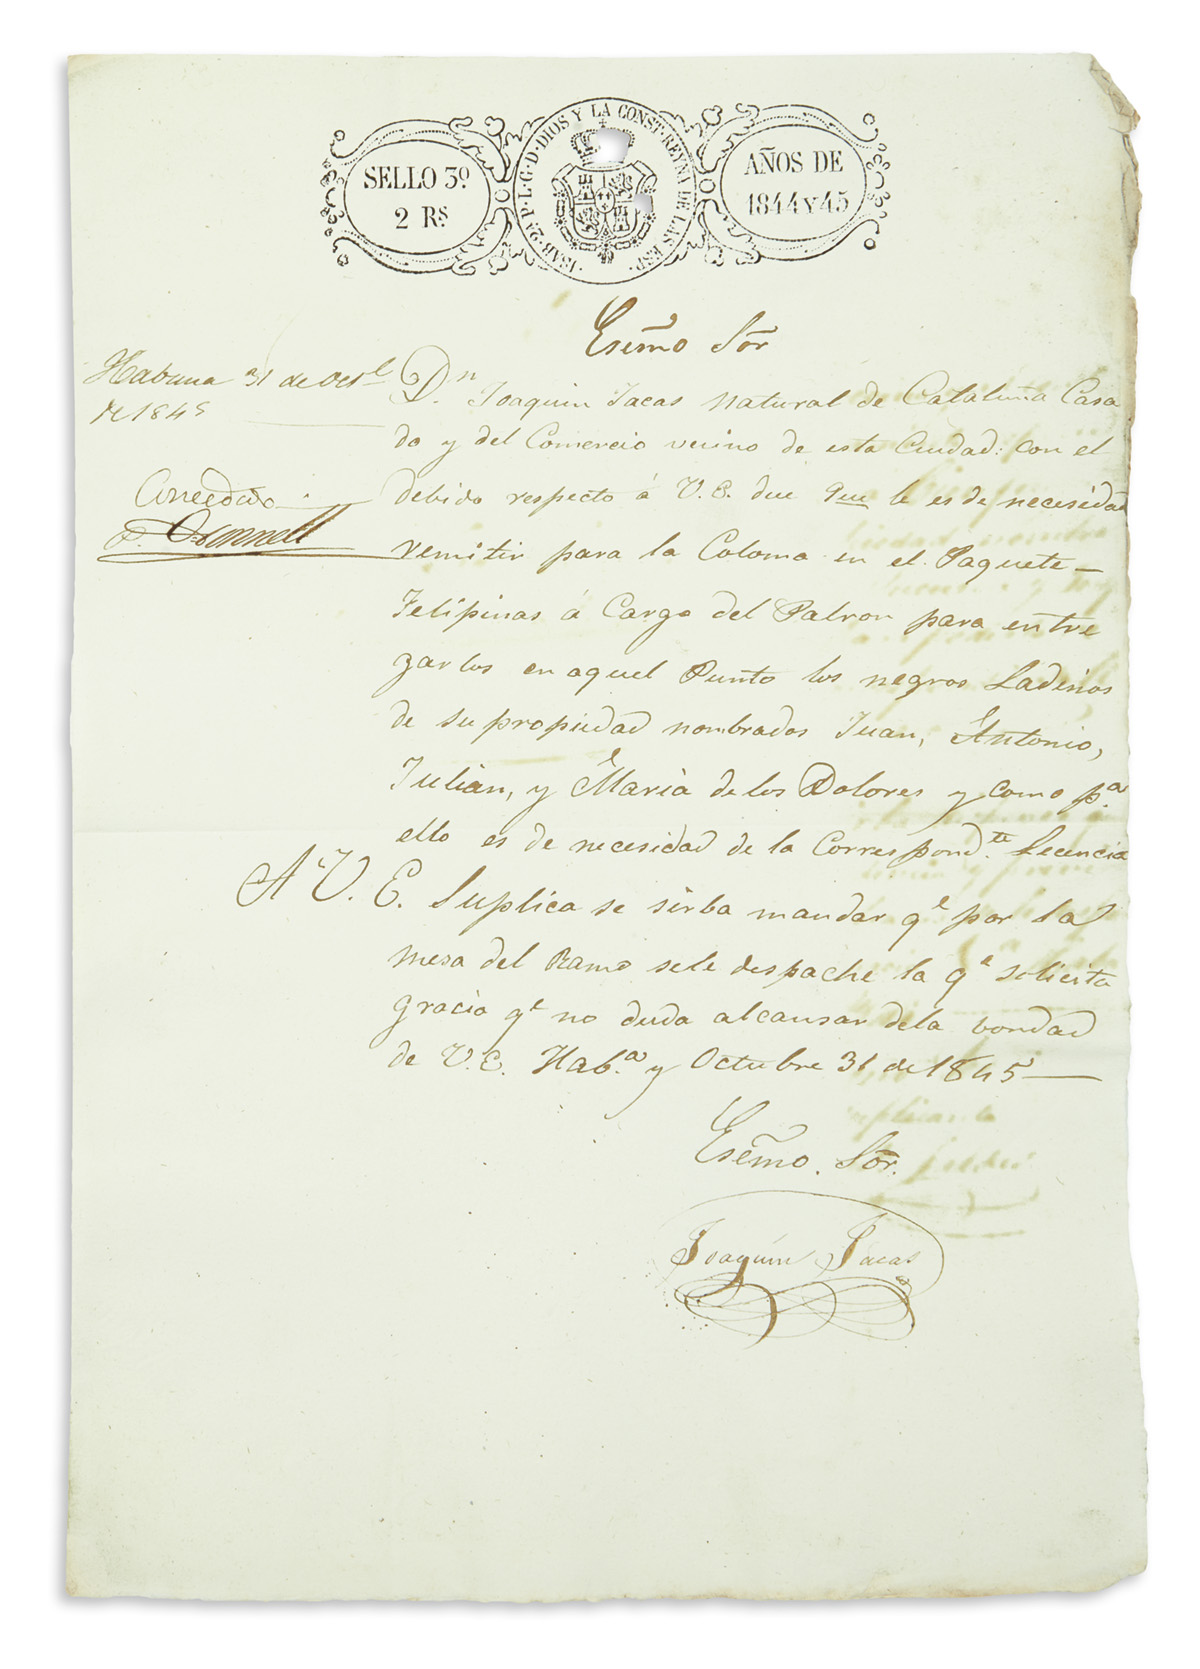 SELLO 3º
2 Rs
ISAB. 2ª P. L. G. D. DIOS Y LA CONST. REYNA DE LAS ESP.
AÑOS DE
1844 Y 45
Esemo Sor
Habana 31 de Octe
de 1845
Concedido
O'Donnell
Dn Joaquin Jacas natural de Cataluña Casa
do y del Comercio vecino de esta Ciudad: con el
debido respecto á V. E. dice que le es de necesidad
remitir para la Coloma en el Paquete
Felipinas á Cargo del Patron para entre
garlos en aquel Punto los negros Ladinos
de su propiedad nombrados Juan, Antonio,
Julian, y Maria de los Dolores y como pa
ello es de necesidad de la Correspondte Lecencia
A V. E. Suplica se sirba mandar qe por la
mesa del Ramo sele despache la qe solicita
gracia qe no duda alcansar dela bondad
de V. E. Haba y Octubre 31 de 1845
Esemo. Sor.
Joaquin Jacas